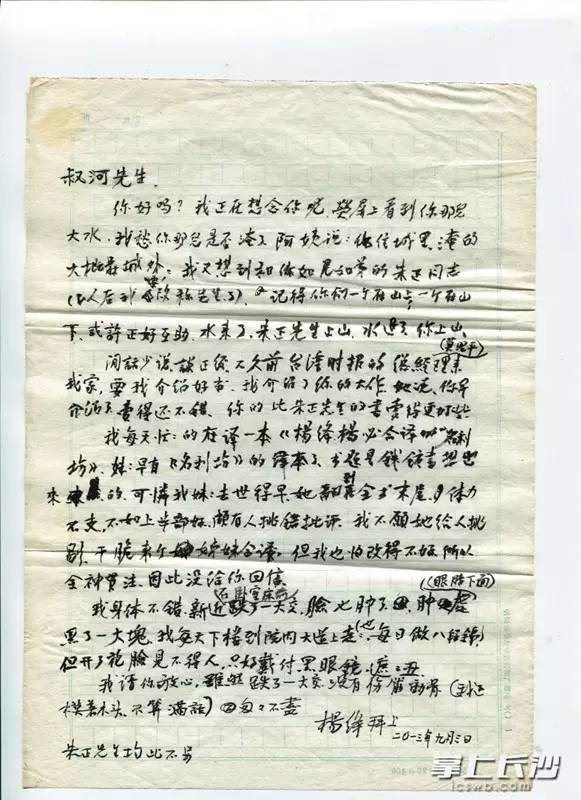 叔河先生,
你好吗?我正在想念你呢,荧屏上看到你那里
大水,我愁你那里是否淹了,阿姨说:他住城里,淹的
大概是城外。我又想到和你如 的朱正同志
(女人后我 改称先生了),记得你们一个在山上一个在山
下,或许正好互助,水来了,朱正先生上山,水退了你上山。
(莫 平)
闲话少说,谈正经,不久前台湾时报的总经理来
我家,要我介绍好书,我介绍了你的大作,她说,你早
介绍了,卖得还不错,你的比朱正先生的书卖得更好些
我每天忙的在译一本《杨绛杨必合译的“名利
坊》,妹妹早有《名利场》的译本了,书题是钱锺书想出
来的,可怜我妹妹去世得早,她翻到全书末尾,体力
不支,不如上半部好,颇有人挑错批评,我不愿她给人挑
剔,干脆来个姊妹合译,但我也怕改得不好,所以
全神贯注,因此没给你回信
我身体不错,新近(在卧室床前)跌了一大交,脸也肿了,(眼睛下面)肿 处
黑了一大块,我每天下楼到院内大道上走走,(也)每日做八段锦,
但开了花脸见不得人,只好戴付黑眼镜,遮遮丑
我请你放心,虽然跌了一大交,没有伤筋动骨(到 还
摸着木头,不算满话)匆匆不尽
杨绛拜上
二〇一三年九月三日
朱正先生均此不另
掌上长沙
icswb.com